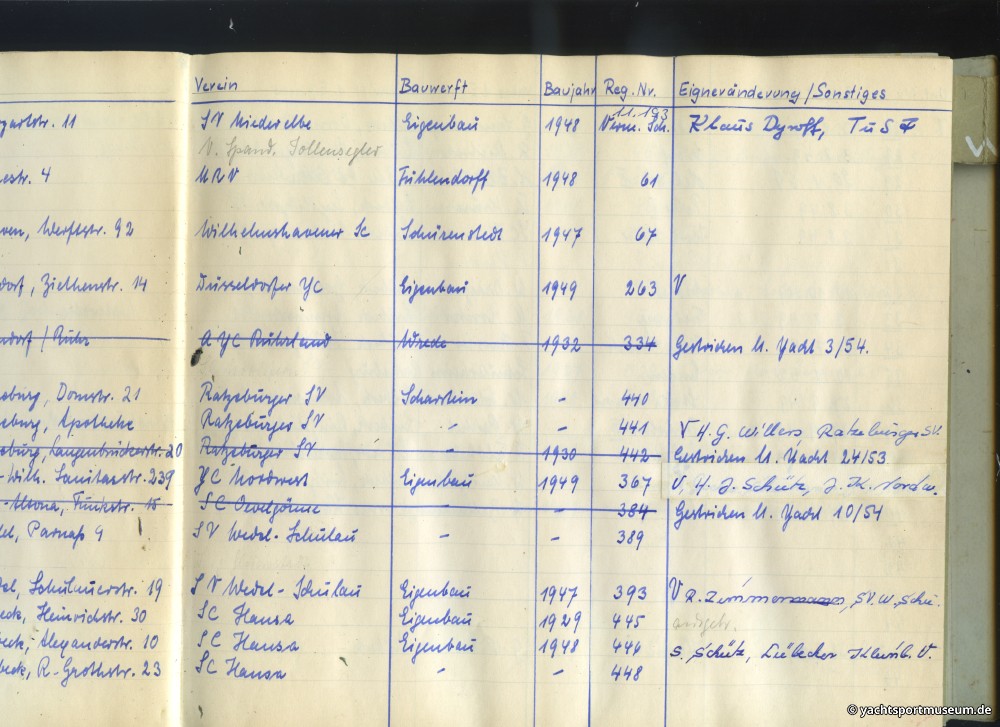 Verein Bauwerft Baujahr Reg. Nr. Eigneränderung / Sonstiges
11.193
str. 11 SV Niederelbe Eigenbau 1948 Verm. Sch. Klaus Dyroff, TuS
V. Spand. Jollensegler
str. 4 MRV Fühlendorff 1948 61
ven, Werftstr. 92 Wilhelmshavener SC Schürenstedt 1947 67
dorf, Ziethenstr. 14 Düsseldorfer YC Eigenbau 1949 263 V
ndorf / Ruhr A YC Ruhrland Wrede 1932 334 Gestrichen lt. Yacht 3/54.
eburg, Domstr. 21 Ratzeburger SV Scharstein - 440
eburg, Apotheke Ratzeburger SV - - 441 V H. G. Willers, Ratzeburger SV.
eburg, Langenbrückerstr. 20 Ratzeburger SV - 1930 442 Gestrichen lt. Yacht 24/53
-Wilh. Sanitasstr. 239 YC Nordwest Eigenbau 1949 367 V, H. J. Schütz, J. K. Nordw.
-Altona, Funkstr. 15 SC Oevelgönne - - 384 Gestrichen lt. Yacht 10/54
el, Parnaß 9 SV Wedel-Schulau - - 389
el, Schulauerstr. 19 SV Wedel-Schulau Eigenbau 1947 393 V R. Zimmermann, SV. W. Schu.
beck, Heinrichstr. 30 SC Hansa Eigenbau 1929 445 ausgetr.
beck, Alexanderstr. 10 SC Hansa Eigenbau 1948 446 S. Schütz, Lübecker V.
beck, R-Grothstr. 23 SC Hansa - - 448
© yachtsportmuseum.de